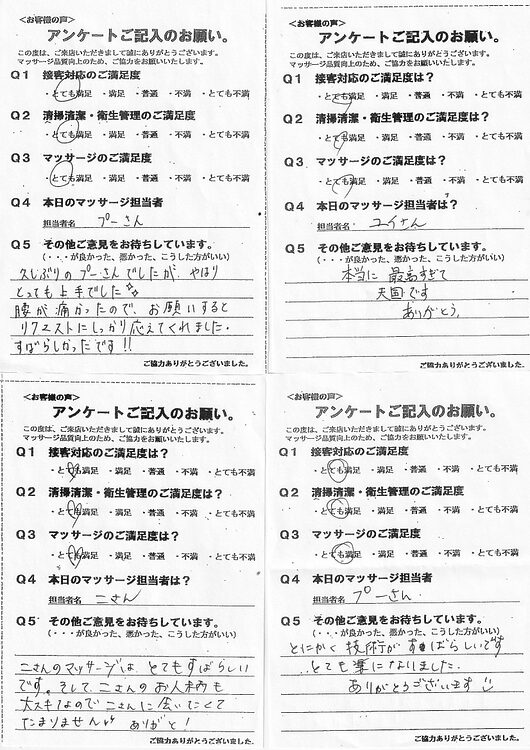 <お客様の声>
アンケートご記入のお願い。
この度は、ご来店いただきまして誠にありがとうございます。
マッサージ品質向上のため、ご協力をお願いいたします。
Q1 接客対応のご満足度
・とても満足 ・満足 ・普通 ・不満 ・とても不満
Q2 清掃清潔・衛生管理のご満足度
・とても満足 ・満足 ・普通 ・不満 ・とても不満
Q3 マッサージのご満足度
・とても満足 ・満足 ・普通 ・不満 ・とても不満
Q4 本日のマッサージ担当者
担当者名 プーさん
Q5 その他ご意見をお待ちしています。
(・・・が良かった、悪かった、こうした方がいい)
久しぶりのプーさんでしたが、やはり
とっても上手でした
腰が痛かったので、お願いすると
リクエストにしっかり応えてくれました。
すばらしかったです!!
ご協力ありがとうございました。
<お客様の声>
アンケートご記入のお願い。
この度は、ご来店いただきまして誠にありがとうございます。
マッサージ品質向上のため、ご協力をお願いいたします。
Q1 接客対応のご満足度は?
・とても満足 ・満足 ・普通 ・不満 ・とても不満
Q2 清掃清潔・衛生管理のご満足度は?
・とても満足 ・満足 ・普通 ・不満 ・とても不満
Q3 マッサージのご満足度は?
・とても満足 ・満足 ・普通 ・不満 ・とても不満
Q4 本日のマッサージ担当者は?
担当者名 ユイさん
Q5 その他ご意見をお待ちしています。
(・・・が良かった、悪かった、こうした方がいい)
本当に最高すぎて
天国です
ありがとう。
ご協力ありがとうございました。
<お客様の声>
アンケートご記入のお願い。
この度は、ご来店いただきまして誠にありがとうございます。
マッサージ品質向上のため、ご協力をお願いいたします。
Q1 接客対応のご満足度は?
・とても満足 ・満足 ・普通 ・不満 ・とても不満
Q2 清掃清潔・衛生管理のご満足度は?
・とても満足 ・満足 ・普通 ・不満 ・とても不満
Q3 マッサージのご満足度は?
・とても満足 ・満足 ・普通 ・不満 ・とても不満
Q4 本日のマッサージ担当者は?
担当者名 ニさん
Q5 その他ご意見をお待ちしています。
(・・・が良かった、悪かった、こうした方がいい)
ニさんのマッサージは、とてもすばらしい
です。そして、ニさんのお人柄も
大スキなので ニさんに会いたくて
たまりません ありがと!
ご協力ありがとうございました。
<お客様の声>
アンケートご記入のお願い。
この度は、ご来店いただきまして誠にありがとうございます。
マッサージ品質向上のため、ご協力をお願いいたします。
Q1 接客対応のご満足度
・とても満足 ・満足 ・普通 ・不満 ・とても不満
Q2 清掃清潔・衛生管理のご満足度
・とても満足 ・満足 ・普通 ・不満 ・とても不満
Q3 マッサージのご満足度
・とても満足 ・満足 ・普通 ・不満 ・とても不満
Q4 本日のマッサージ担当者
担当者名 プーさん
Q5 その他ご意見をお待ちしています。
(・・・が良かった、悪かった、こうした方がいい)
とにかく技術がすばらしいです
とても楽になりました。
ありがとうございます
ご協力ありがとうございました。